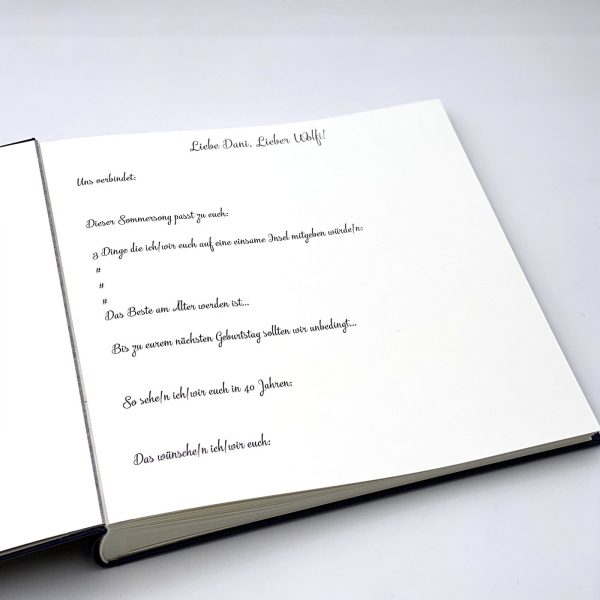 Liebe Dani, Lieber Wolfi!
Uns verbindet:
Dieser Sommersong passt zu euch:
3 Dinge die ich/wir euch auf eine einsame Insel mitgeben würde/n:
#
#
#
Das Beste am Älter werden ist...
Bis zu eurem nächsten Geburtstag sollten wir unbedingt...
So sehe/n ich/wir euch in 40 Jahren:
Das wünsche/n ich/wir euch: